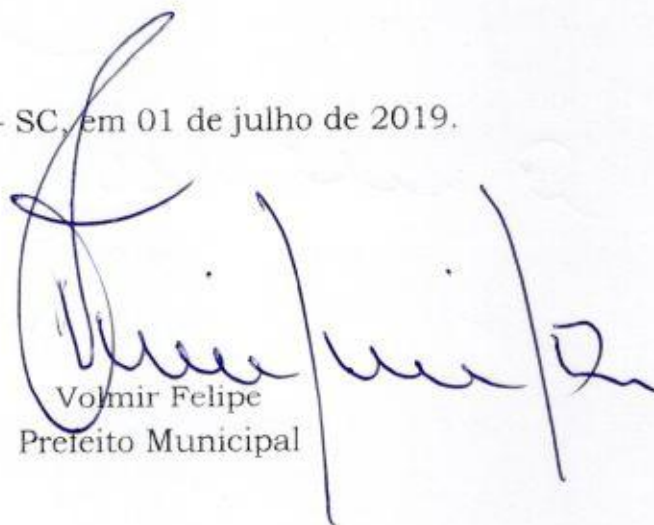 - SC, em 01 de julho de 2019.
Volmir Felipe
Prefeito Municipal